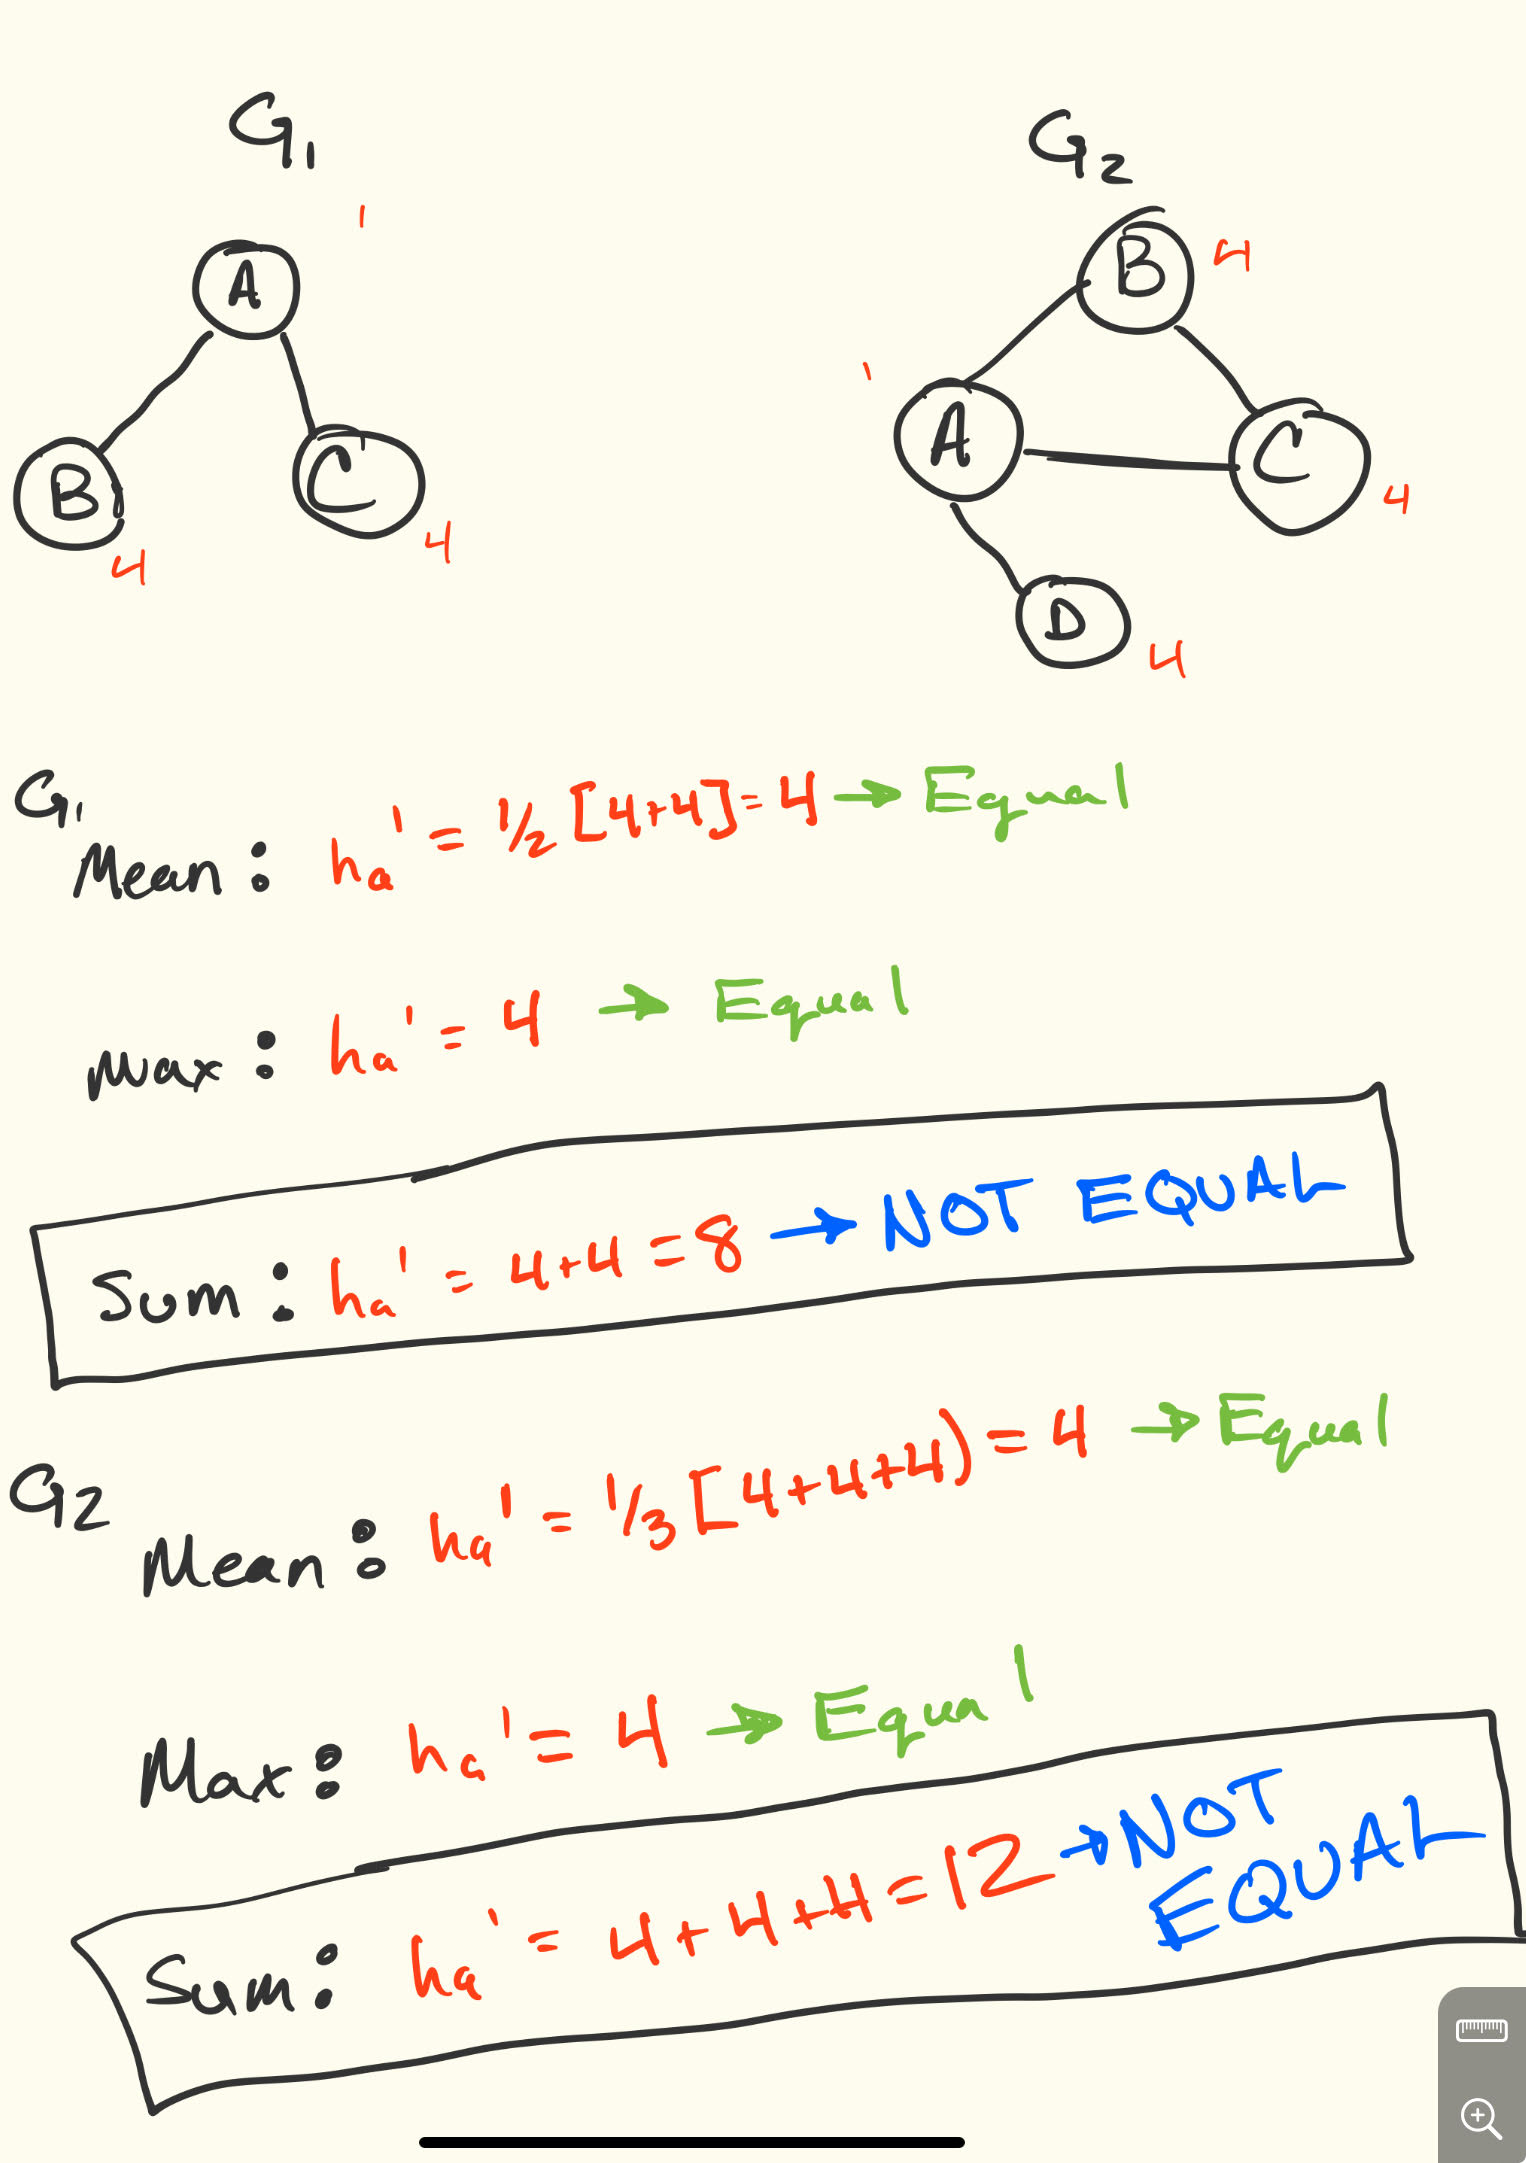 G₁
G₂
1
A
B
4
C
4
B
4
1
A
C
4
D
4
G₁
Mean: ha' = 1/2 [4+4] = 4 → Equal
Max: ha' = 4 → Equal
Sum: ha' = 4+4 = 8 → NOT EQUAL
G2
Mean: ha' = 1/3 [4+4+4) = 4 → Equal
Max: ha' = 4 → Equal
Sum: ha' = 4+4+4 = 12 → NOT
EQUAL